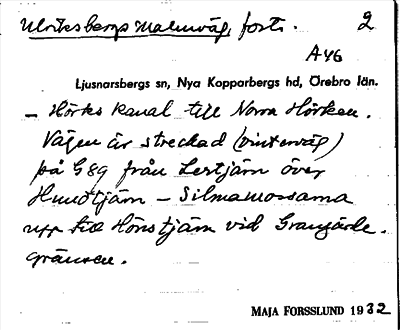 Ulriksbergs Malmväg, forts. 2
A46
Ljusnarsbergs sn, Nya Kopparbergs hd, Örebro län.
– Hörks kanal till Norra Hörken.
Vägen är streckad (vinterväg)
på G89 från Lertjärn över
Hundtjärn – Silmamossarna
upp till Hönstjärn vid Grangärde-
gränsen.
MAJA FORSSLUND 1932